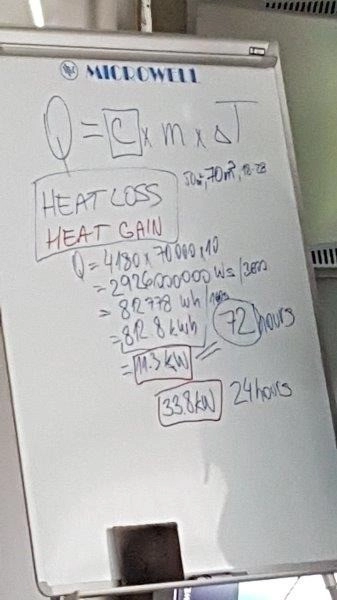 MICROWELL
Q = C x m x ΔT
70m³, 18-28
HEAT LOSS
HEAT GAIN
Q = 4180 x 70000 x 10
= 2926000000 Ws /3600
= 812778 Wh /1000
= 812.8 kWh / 72 hours
= 11.3 kW
33.8 kW 24 hours